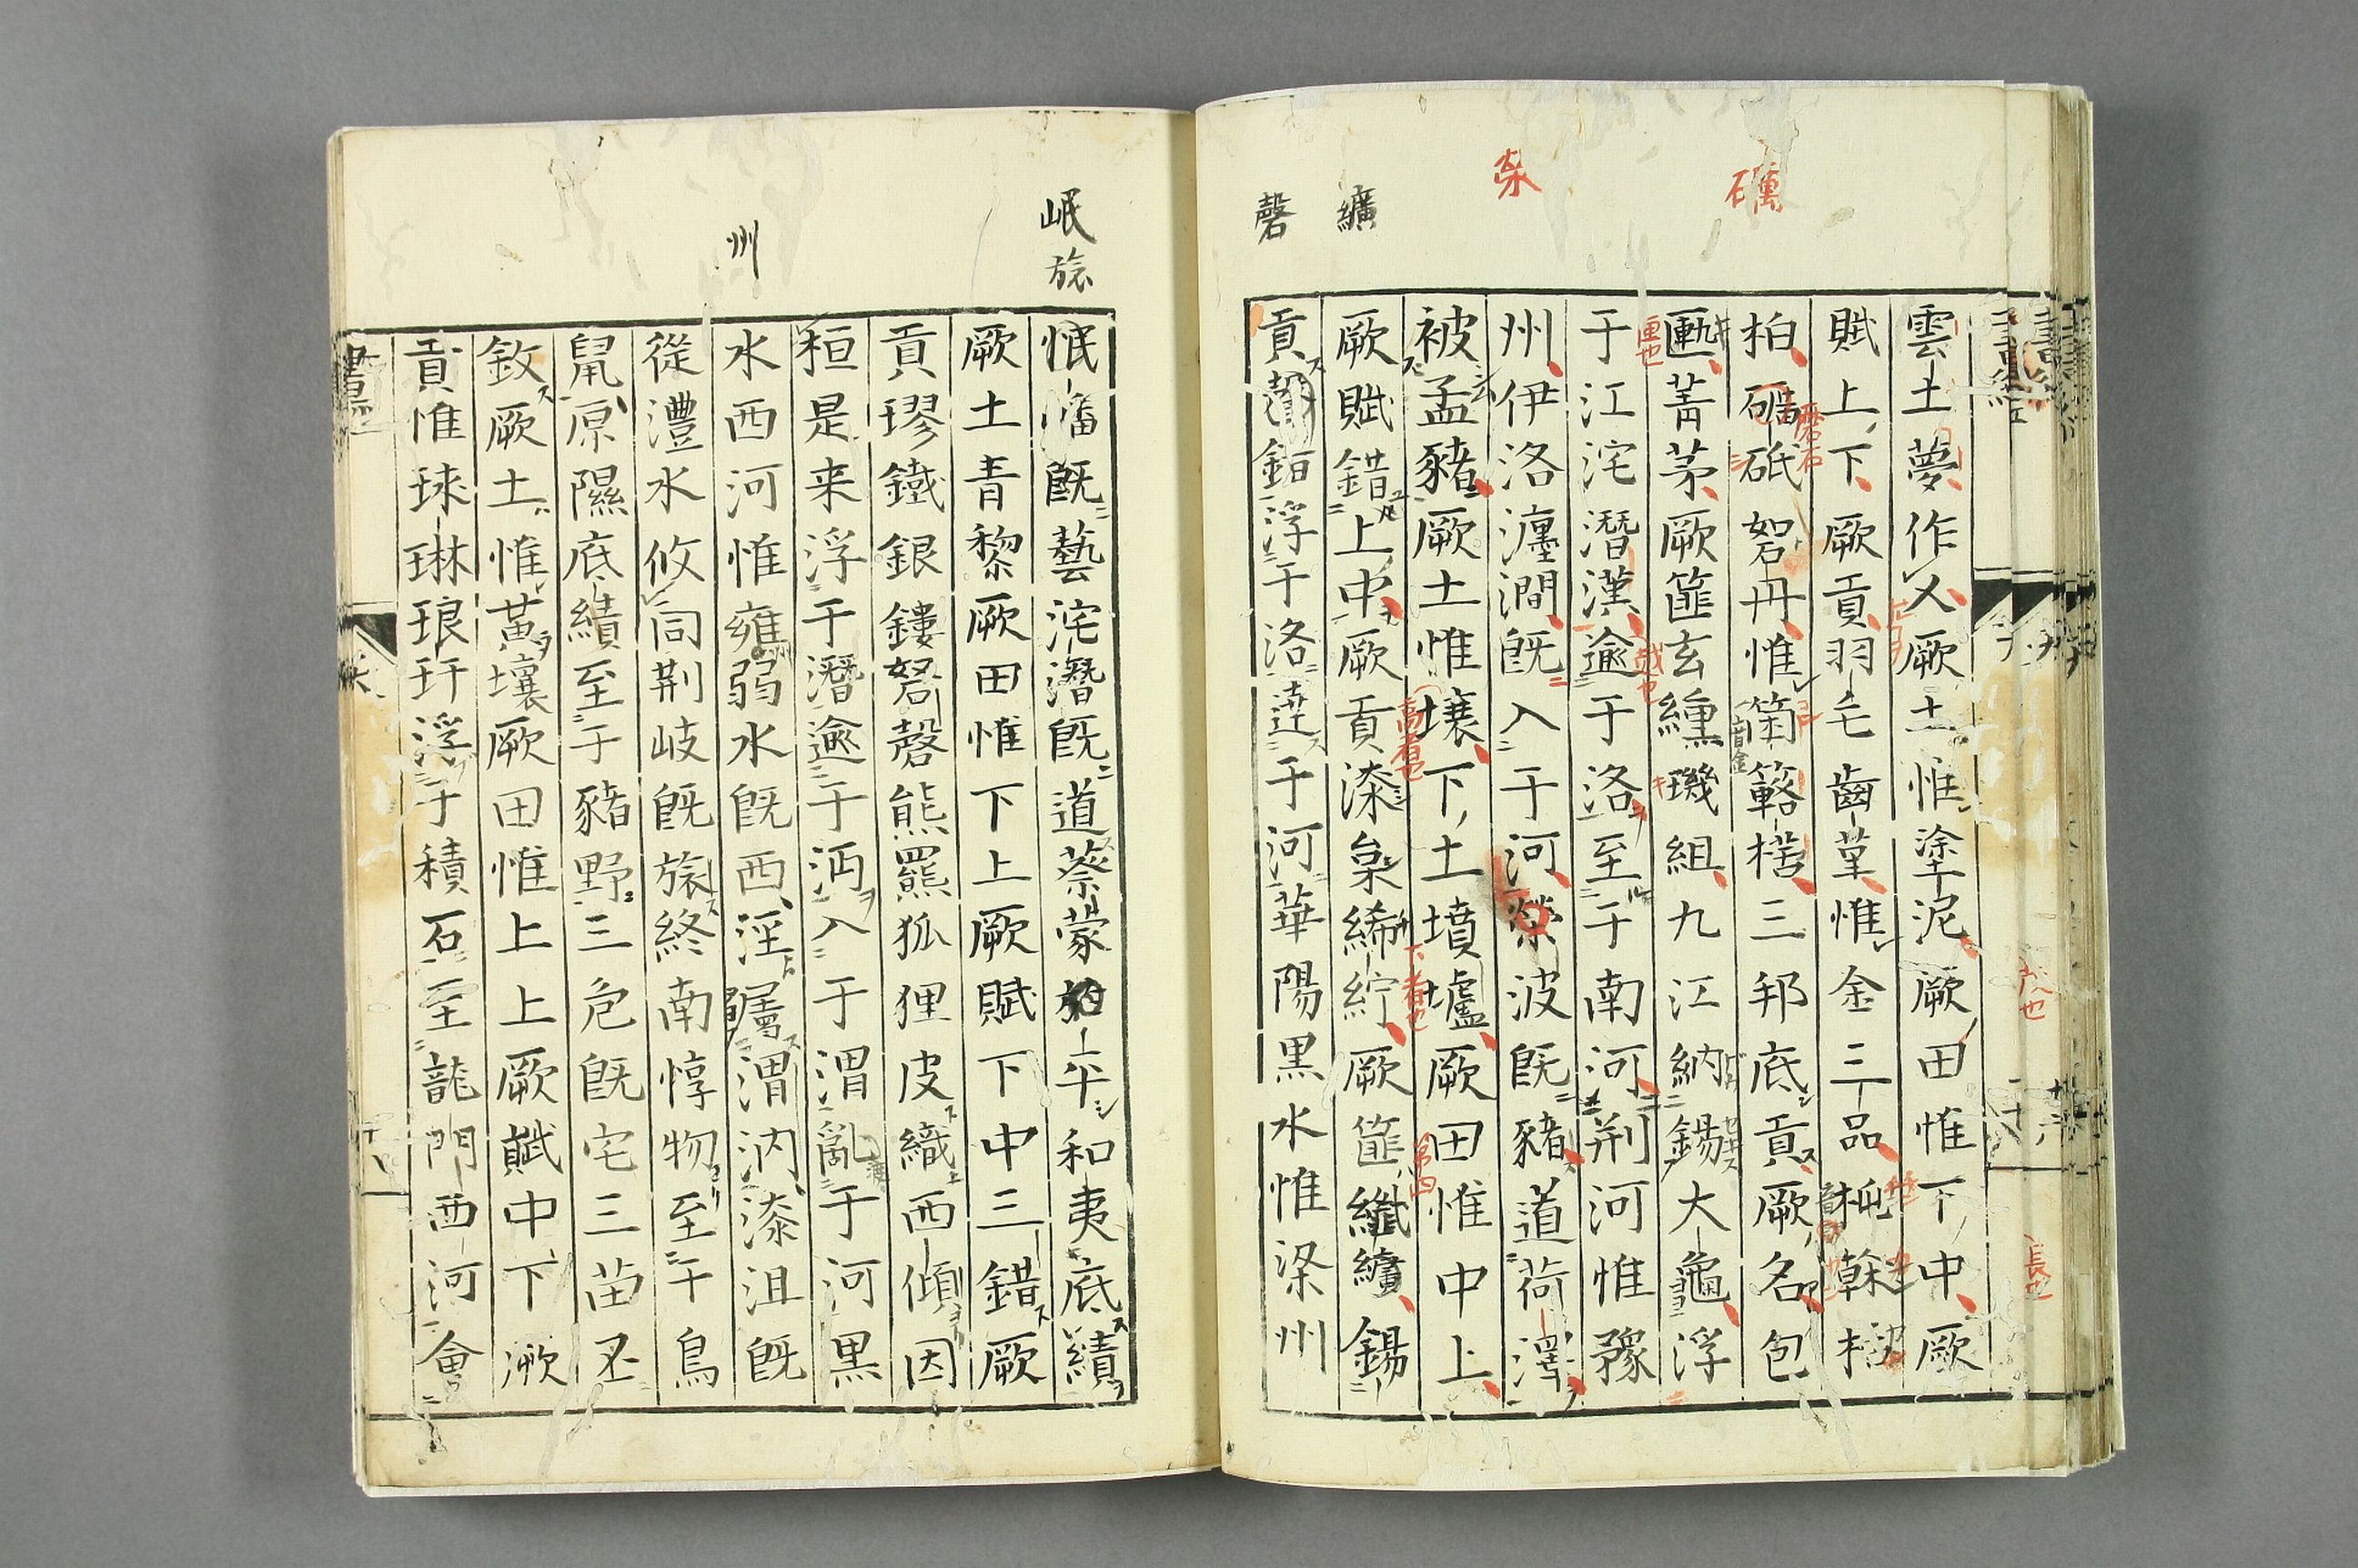 礪
榮
纊
磬
雲土夢作乂厥土惟塗泥厥田惟下中厥
賦上下厥貢羽毛齒革惟金三品杶榦栝
柏礪砥砮丹惟箘簵楛三邦底貢厥名包
匭菁茅厥篚玄纁璣組九江納錫大龜浮
于江沱潛漢逾于洛至于南河荆河惟豫
州伊洛瀍澗既入于河榮波既豬道荷澤
被孟豬厥土惟壤下土墳壚厥田惟中上
厥賦錯上中厥貢漆枲絺紵厥篚纖纊錫
貢磬錯浮于洛達于河華陽黑水惟梁州
岷
旅
州
岷嶓既藝沱潛既道蔡蒙旅平和夷底績
厥土青黎厥田惟下上厥賦下中三錯厥
貢璆鐵銀鏤砮磬熊羆狐狸皮織西傾因
桓是来浮于潛逾于沔入于渭亂于河黑
水西河惟雍弱水既西涇屬渭汭漆沮既
從灃水攸同荆岐既旅終南惇物至于鳥
鼠原隰底績至于豬野三危既宅三苗丕
敘厥土惟黃壤厥田惟上上厥賦中下厥
貢惟球琳琅玕浮于積石至龍門西河會